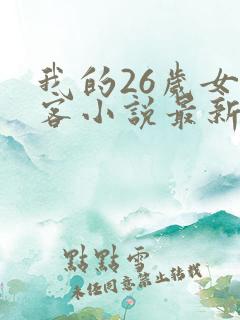 我的26歲女
客小說最新
點點雪
未经同意禁止转载